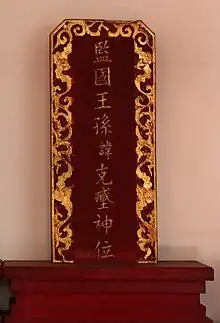 監國王孫諱克𡒉神位